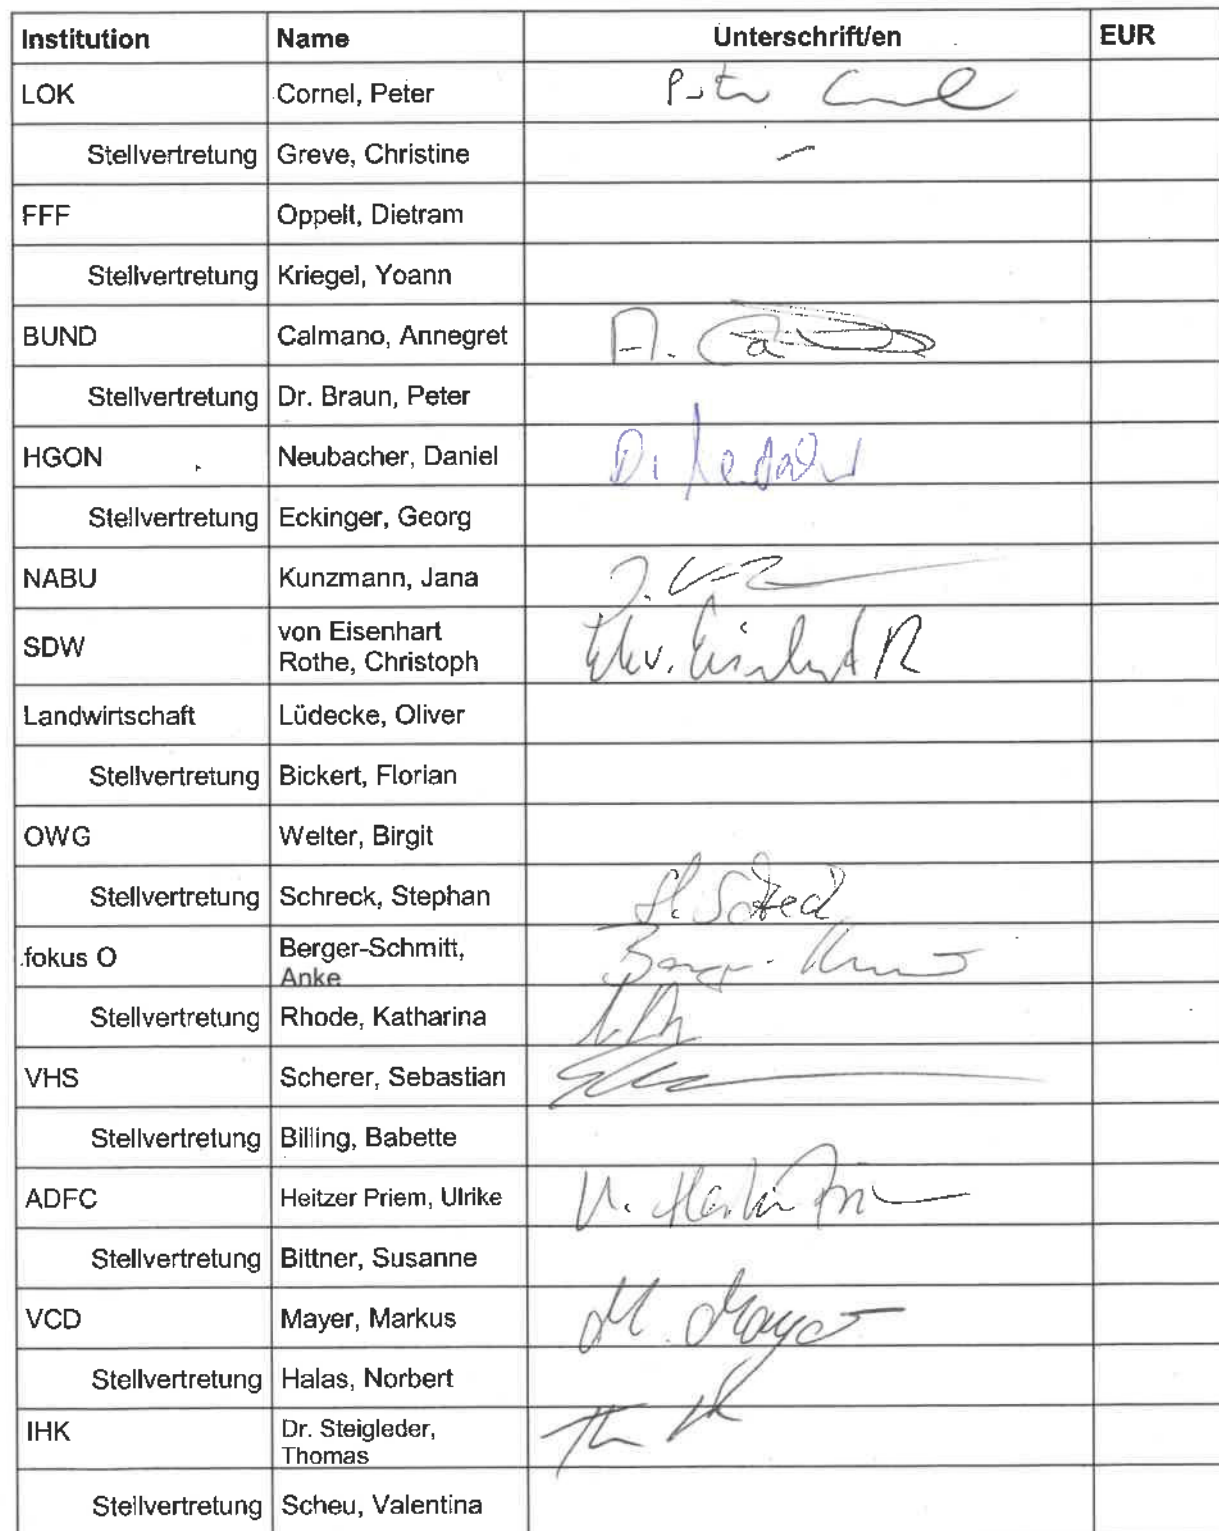 Institution Name Unterschrift/en EUR
LOK Cornel, Peter Peter Cornel
Stellvertretung Greve, Christine -
FFF Oppelt, Dietram
Stellvertretung Kriegel, Yoann
BUND Calmano, Annegret A.
Stellvertretung Dr. Braun, Peter
HGON Neubacher, Daniel D.
Stellvertretung Eckinger, Georg
NABU Kunzmann, Jana J.
SDW von Eisenhart
Rothe, Christoph
Landwirtschaft Lüdecke, Oliver
Stellvertretung Bickert, Florian
OWG Welter, Birgit
Stellvertretung Schreck, Stephan
fokus O Berger-Schmitt,
Anke
Stellvertretung Rhode, Katharina
VHS Scherer, Sebastian
Stellvertretung Billing, Babette
ADFC Heitzer Priem, Ulrike U.
Stellvertretung Bittner, Susanne
VCD Mayer, Markus M. Mayer
Stellvertretung Halas, Norbert
IHK Dr. Steigleder,
Thomas
Stellvertretung Scheu, Valentina